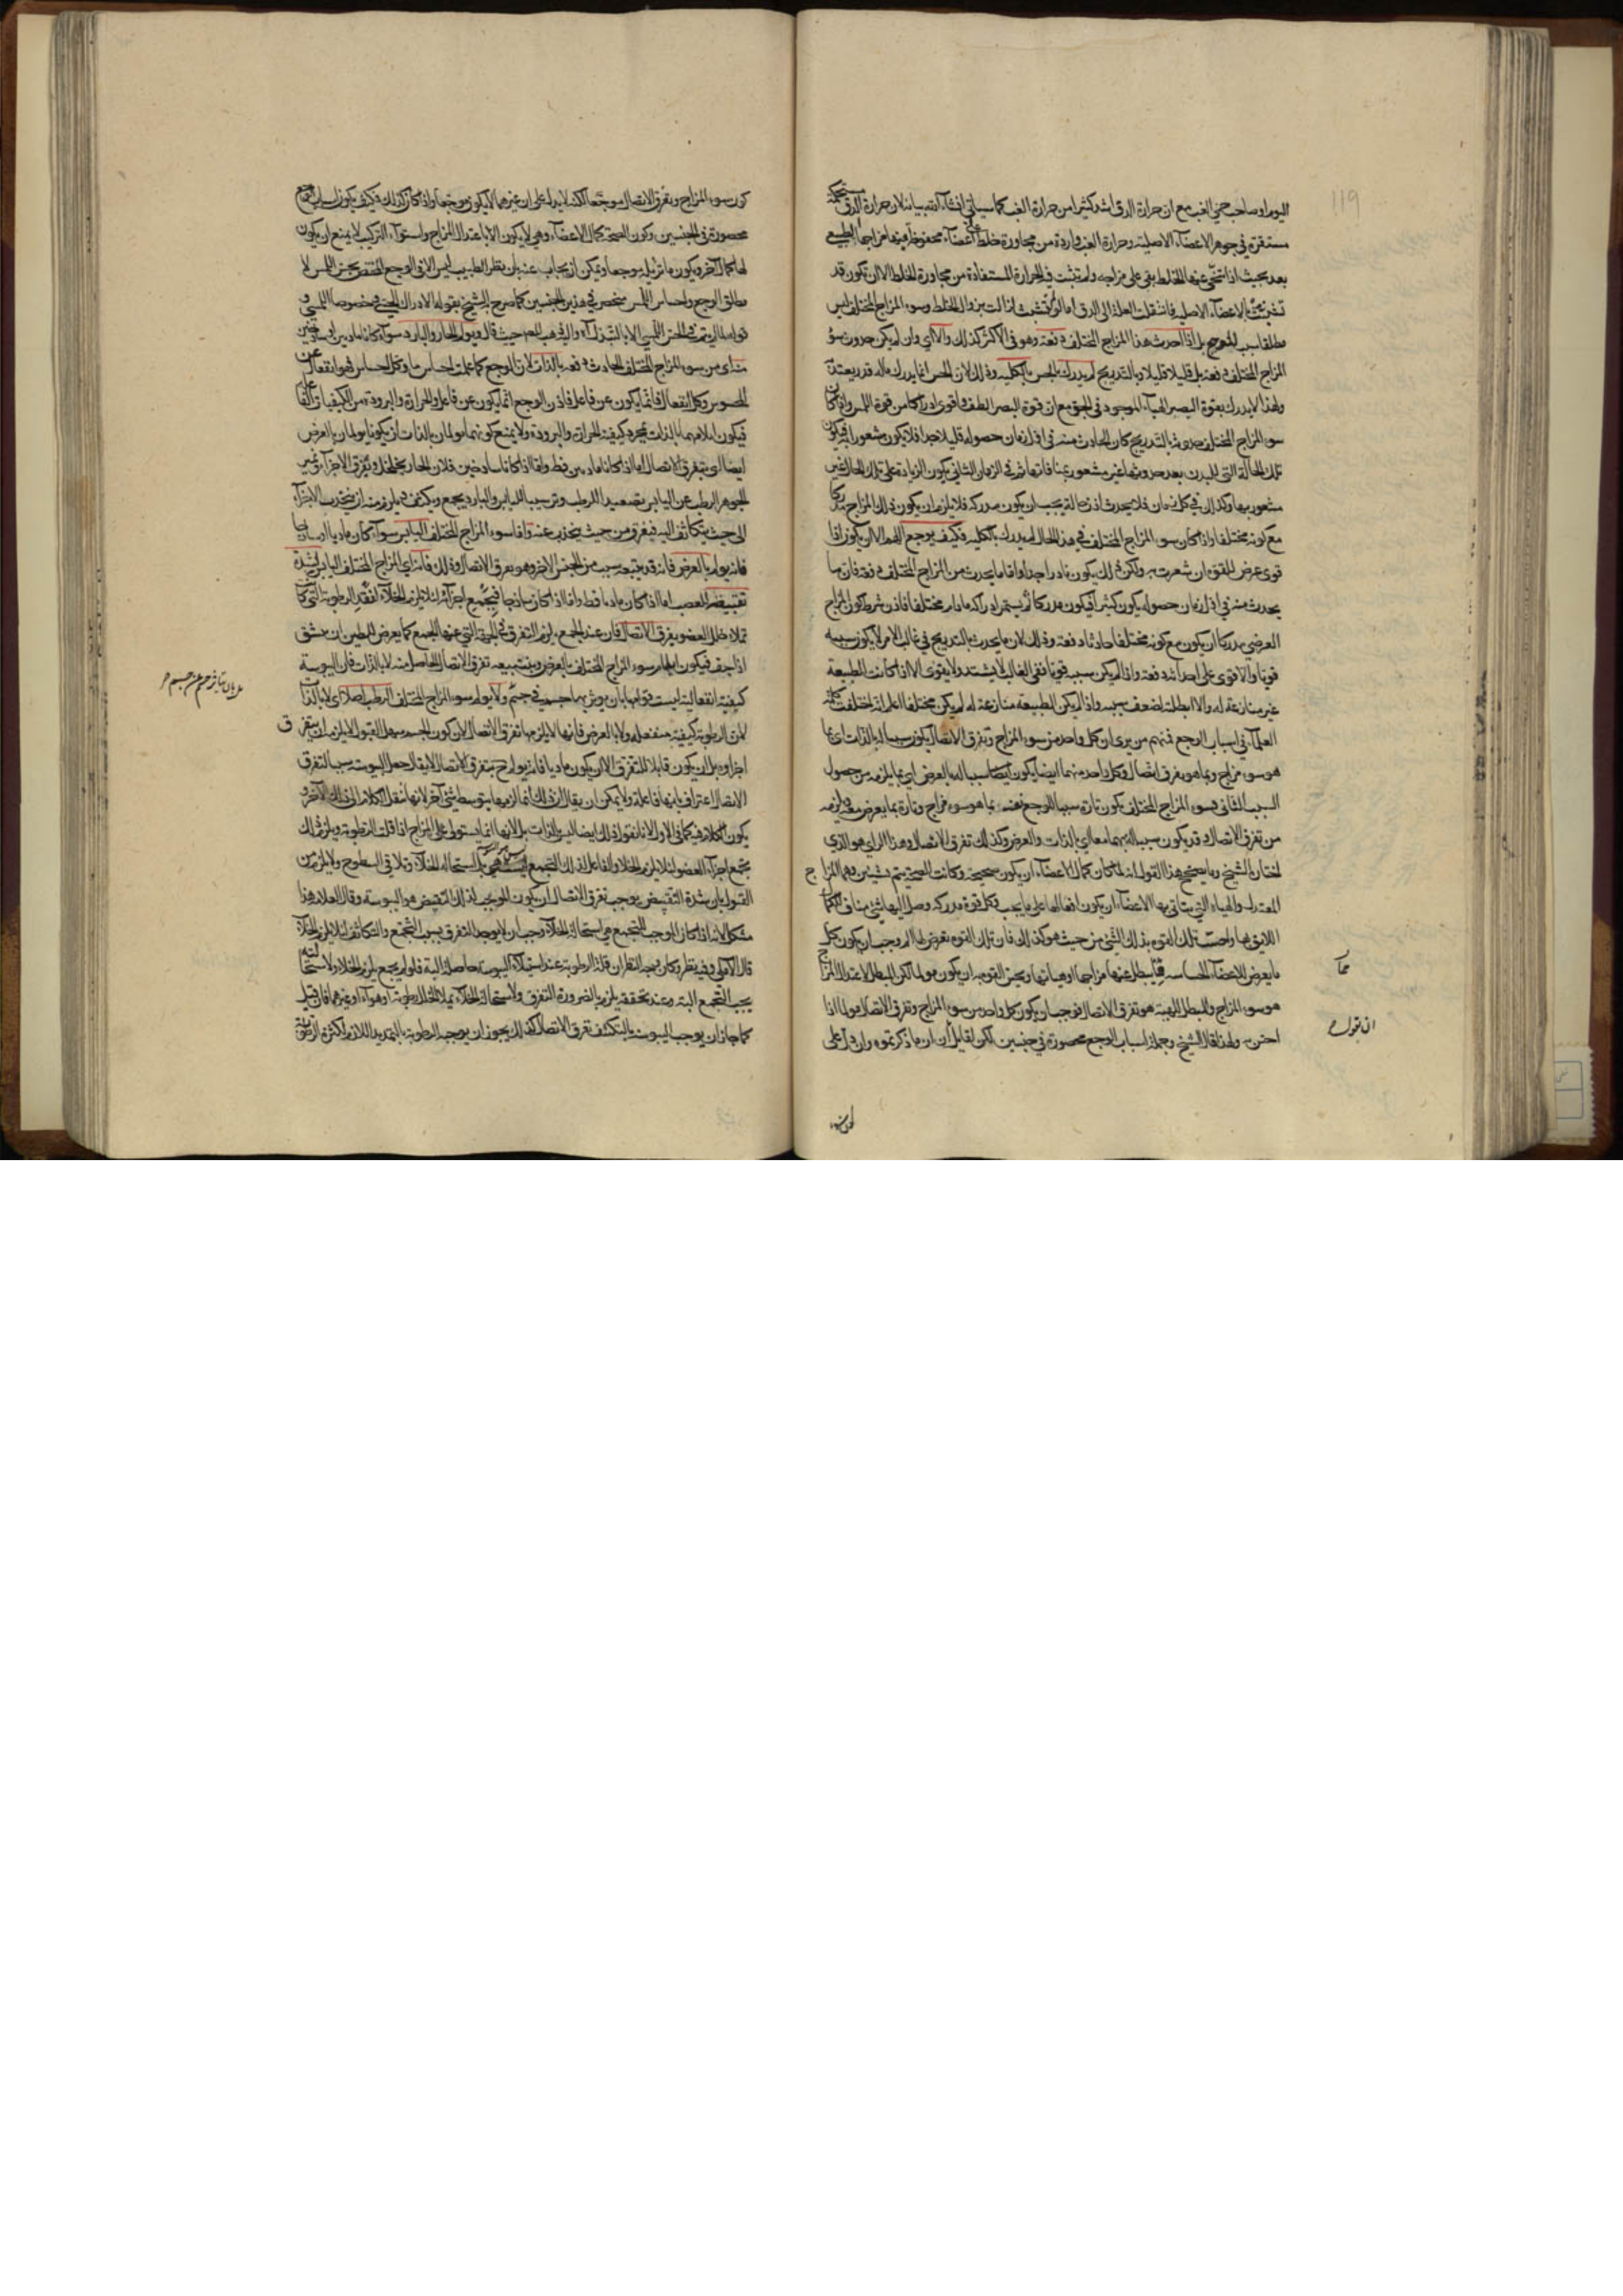 119
اليوم او صاحب حمى الغب مع ان حرارة الدق اشد كثيرا من حرارة الغب كما سيأتي انشاء الله بيانه لان حرارة الدق مستحكمة
مستقرة في جوهر الاعضاء الاصلية وحرارة الغب واردة من مجاورة خلط على اعضاء محفوظ فيها مزاجها الطبيعي
بعد بحيث اذا تنحى عنها الخلط بقي على مزاجه ولم تثبت فيه الحرارة المستفادة من مجاورة الخلط الا ان تكون قد
تشبثت بالاعضاء الاصلية فانتقلت العلة الى الدق اما لو لم تشبث لزالت بزوال الخلط وسوء المزاج المختلف ليس
مطلقا سبب للوجع بل اذا حدث هذا المزاج المختلف دفعة وهو في الاكثر كذلك والا اي وان لم يكن حدوث سوء
المزاج المختلف دفعة بل قليلا قليلا وبالتدريج لم يدرك بالحس بالكلية وذلك لان الحس انما يدرك ماله قدر يعتد به
ولهذا لا يدرك بقوة البصر الهباء الموجود في الجو مع ان قوة البصر الطف واقوى ادراكا من قوة اللمس واذا كان
سوء المزاج المختلف حدوثه بالتدريج كان الحادث منه في اقل زمان حصوله قليلا جدا فلا يكون مشعورا به فيكون
تلك الحالة التي للبدن بعد حدوثها غير مشعور بمنافاتها ثم في الزمان الثاني يكون الزيادة على تلك الحال غير
مشعور بها وكذلك في كل زمان فلا يحدث اذن حالة يجب ان يكون مدركة فلا يلزم ان يكون ذلك المزاج مدركا
مع كونه مختلفا واذا كان سوء المزاج المختلف في هذا الحال لم يدرك بالكلية فكيف يوجع اللهم الا ان يكون اذا
قوى عرض للقوة ان شعرت به ولكن ذلك يكون نادرا جدا واما ما يحدث من المزاج المختلف دفعة فان ما
يحدث منه في اقل زمان حصوله يكون كثيرا فيكون مدركا ثم يستمر ادراكه مادام مختلفا فاذن شرط كون المزاج
العرضي مدركا ان يكون مع كونه مختلفا حادثا دفعة وذلك لان ما يحدث بالتدريج في غالب الامر لا يكون سببه
قويا والا لقوى على احداثه دفعة واذا لم يكن سببه قويا ففي الغالب لا يشتد ولا يقوى الا اذا كانت الطبيعة
غير منازعة له والا ابطلته لضعف سببه واذا لم يكن الطبيعة منازعة له لم يكن مختلفا اعلم انه اختلفت كلمة
العلماء في اسباب الوجع فمنهم من يرى ان كل واحد من سوء المزاج وتفرق الاتصال يكون سببا له بالذات اي بما
هو سوء مزاج وبما هو تفرق اتصال وكل واحد منهما ايضا يكون سببا له بالعرض اي بما يلزمه من حصول
السبب الثاني فسوء المزاج المختلف يكون تارة سببا للوجع نفسه بما هو سوء مزاج وتارة بما يعرض معه ويلزمه
من تفرق الاتصال وقد يكون سببا له بهما معا اي بالذات والعرض وكذلك تفرق الاتصال وهذا الراي هو الذي
اختاره الشيخ وما يصحح هذا القول انه لما كان كمال الاعضاء ان يكون صحيحة وكانت الصحة يتم بشيئين وهما المزاج
المعتدل والهيأة التي يتأتى بها الاعضاء ان يكون افعالها على ما يجب فكل قوة مدركة وصل اليها شيء مناف لكمالها
اللايق بها واحست تلك القوة بذلك الشيء من حيث هو كذلك فان تلك القوة يعرض لها الم وجب ان يكون كل
ما يعرض للاعضاء الحساسة فيبطل عنها مزاجها او هيأتها ويحس القوة به ان يكون مولما لكن المبطل لاعتدال المزاج
هو سوء المزاج والمبطل للهيئة هو تفرق الاتصال فوجب ان يكون كل واحد من سوء المزاج وتفرق الاتصال مولما اذا
احس به ولهذا قال الشيخ وجملة اسباب الوجع محصورة في جنسين لكن لقايل ان ان ما ذكرتموه وان دل على
ان قول
كون سوء
كون سوء المزاج وتفرق الاتصال موجعا لكنه لا يدل على ان غيرهما لا يكون موجعا واذا كان كذلك فكيف يكون اسباب الوجع
محصورة في الجنسين وكون الصحة كمال الاعضاء وهي لا يكون الا باعتدال المزاج واستواء التركيب لا يمنع ان يكون
لها كمال اخر ويكون ما تزيله موجعا ويمكن ان يجاب عنه بان نظر الطبيب ليس الا في الوجع المختص بحس اللمس لا
مطلق الوجع واحساس اللمس منحصر في هذين الجنسين كما صرح الشيخ بقوله
منه اي من سوء المزاج المختلف الحادث دفعة بالذات لان الوجع كما علمت احساس ما وكل احساس فهو انفعال عن
المحسوس وكل انفعال فانما يكون عن فاعل فاذن الوجع انما يكون عن فاعل والحرارة والبرودة من الكيفيات الفاعلة
فيكون ايلامهما بالذات بمجرد كيفية الحرارة والبرودة ولا يمنع كونهما مولمان بالذات ان يكونا يولمان بالعرض
ايضا اي بتفرق الاتصال اما اذا كانا ماديين فظ واما اذا كانا ساذجين فلان الحار يخلخل ويفرق الاجزاء ويميز
الجوهر الرطب عن اليابس بتصعيد الرطب وترسيب اليابس والبارد يجمع ويكثف فيلزم منه ان ينجذب الاجزاء
الى حيث يتكاثف اليه فيفرق من حيث ينجذب عنه واما سوء المزاج المختلف اليابس سواء كان ماديا او ساذجا
فانه يولم بالعرض فانه قد يتبعه سبب من الجنس الاخر وهو تفرق الاتصال وذلك فانه اي المزاج المختلف اليابس لشدة
تقبيضه للعصب اما اذا كان ماديا فظ واما اذا كان ساذجا فيجمع اجزائه لئلا يلزم الخلاء لفقد الرطوبة التي كانت
تملاء خلل العضو يفرق الاتصال فان عند الجمع يلزم التفرق في الجهة التي عنها الجمع كما يعرض للطين ان ينشق
اذا جف فيكون ايلام سوء المزاج المختلف بالعرض وبتبعيه تفرق الاتصال الحاصل منه لا بالذات فان اليبوسة
كيفية انفعالية ليست قوامها بان يوثر بها جسم في جسم ولا يولم سوء المزاج المختلف الرطب اصلا اي لا بالذات
لان الرطوبة كيفية منفعلة ولا بالعرض فانها لا يلزمها تفرق الاتصال لان كون الجسم سهل القبول لا يلزم ان يتفرق
اجزاوه بل ان يكون قابلا للتفرق الا ان يكون ماديا فانه يولم ح بتفرق الاتصال لا يقال جعل اليبوسة سببا لتفرق
الاتصال اعتراف بانها فاعلة ولا يمكن ان يقال ان ذلك انما لزمها بتوسط شيء اخر لانا ننقل الكلام الى ذلك الاخر و
يكون الكلام فيه كما في الاول لانا نقول ذلك ايضا ليس بالذات بل لانها انما يستولى على المزاج اذا قلت الرطوبة ويلزم ذلك
يجتمع اجزاء العضو لئلا يلزم الخلا والفاعل لذلك التجمع استحالة الخلاء وتلاقي السطوح ولا يلزم من
القول بان شدة التقبيض يوجب تفرق الاتصال ان يكون الموجب لذلك التقبيض هو اليبوسة وقال العلامة هذا
مشكل لانه اذا كان الموجب للتجمع هي استحالة الخلاء وجب ان لا يوجد التفرق بسبب التجمع والتكاثف لئلا يلزم الخلاء
قال الاملي وفيه نظر وكان وجه النظر ان قلة الرطوبة عند استيلاء اليبوسة حاصلة البتة فلو لم يجمع يلزم الخلاء ولاستحالته
يجب التجمع البتة وعند تحققه يلزم بالضرورة التفرق ولاستحالة الخلاء يملا الخلل رطوبة او هواء او غيرهما فان قيل
كما جاز ان يوجب اليبوسة بالتكثف تفرق الاتصال كذلك يجوز ان يوجبه الرطوبة بالتمديد اللازم لكثرة الرطوبة